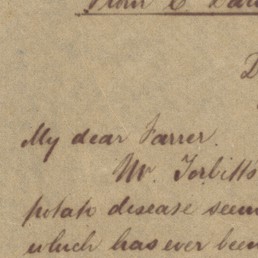 From C. Dar
D
My dear Farrer.
Mr. Torbitt's
potato disease seem
which has ever been